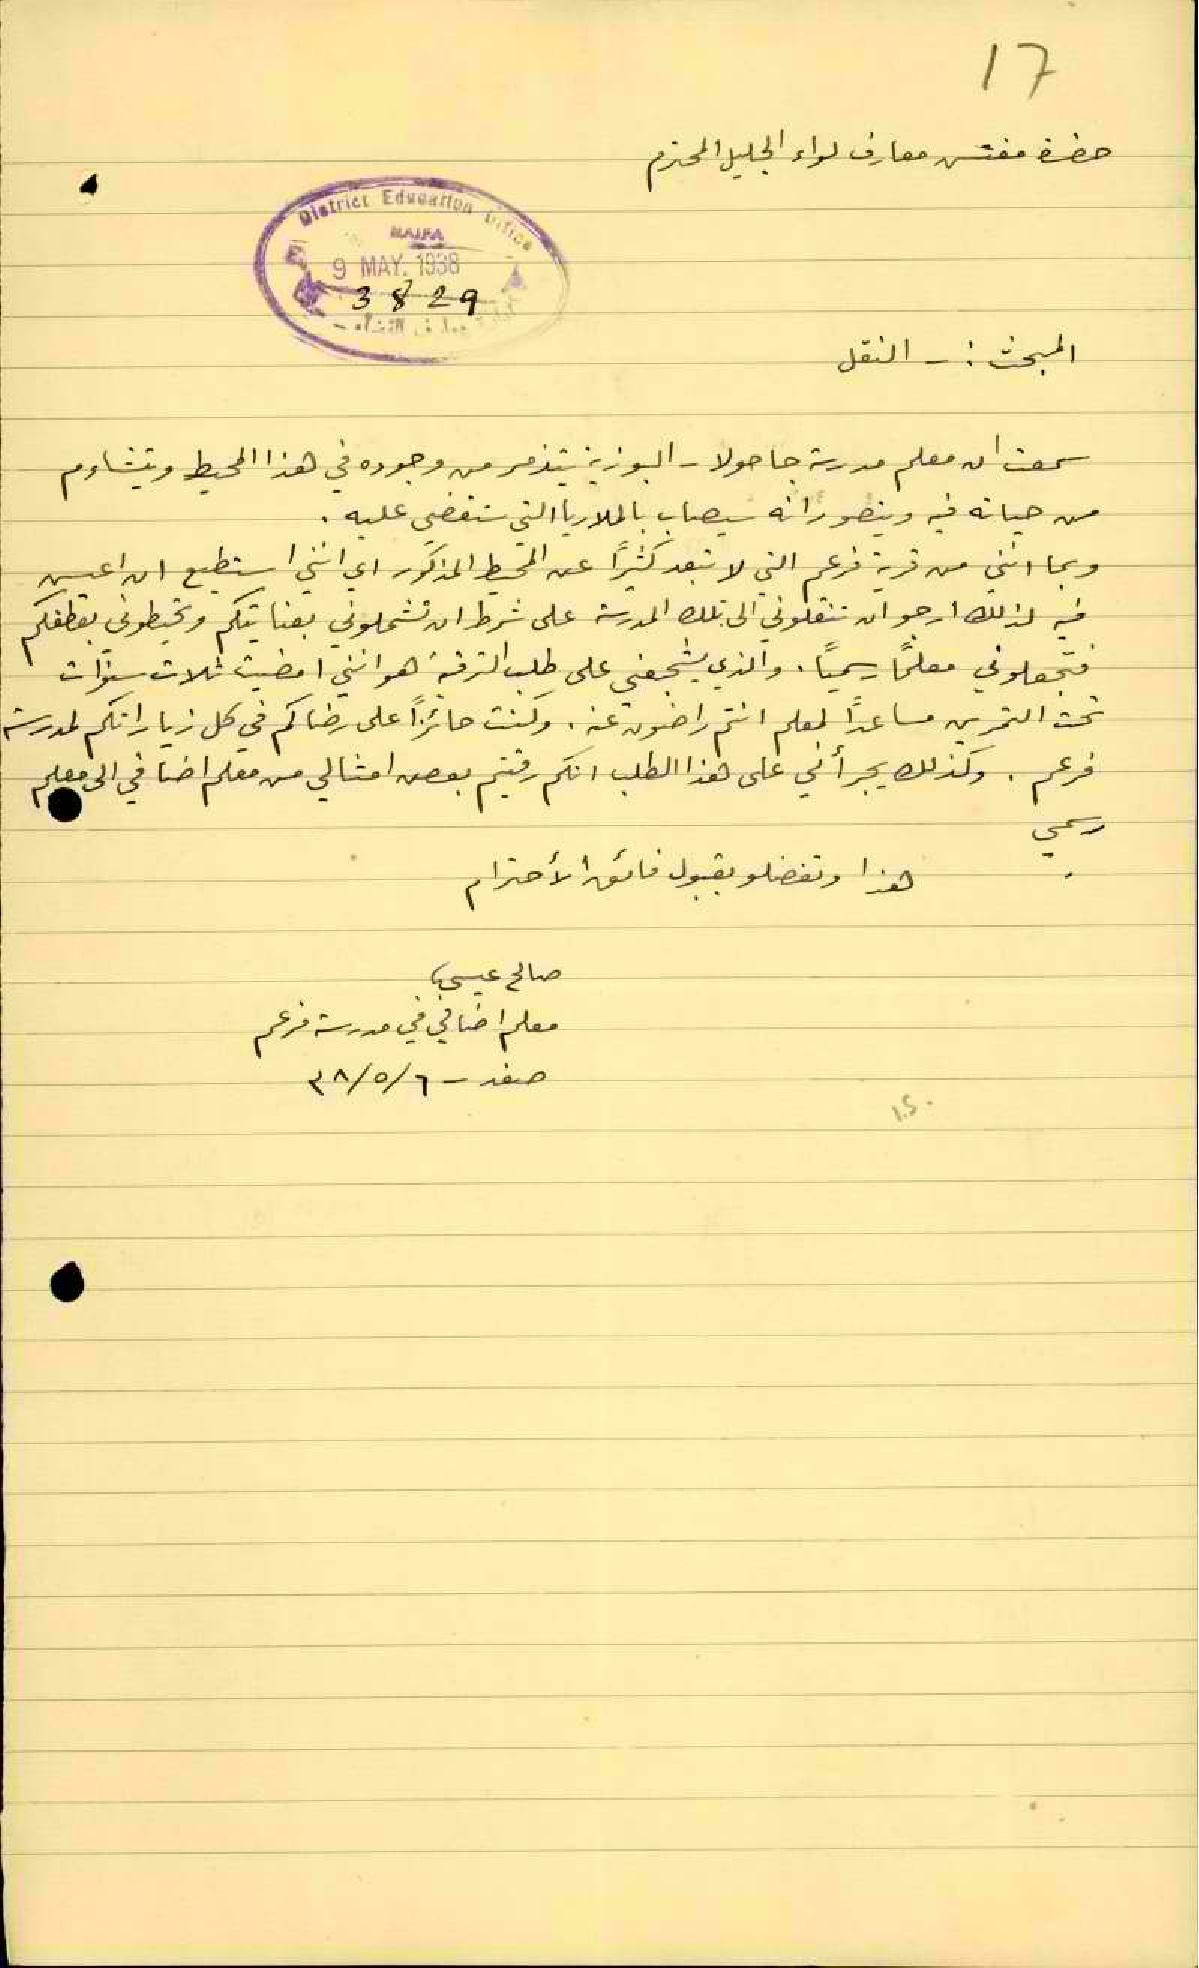 17
حضرة مفتش معارف لواء الجليل المحترم
District Education Office
HAIFA
9 MAY. 1938
3829
المبحث :- النقل
سمعت ان معلم مدرسة جاحولا - البوزية يتذمر من وجوده في هذا المحيط ويتشاءم
من حياته فيه ويتصور انه سيصاب بالملاريا التي ستقضي عليه .
وبما انني من قرية فرعم التي لا تبعد كثيرًا عن المحيط المذكور اي انني استطيع ان اعيش
فيه لذلك ارجو ان تنقلوني الى تلك المدرسة على شرط ان تشملوني بعنايتكم وتحيطوني بعطفكم
فتجعلوني معلمًا رسميًا . والذي يشجعني على طلب الترقية هو انني امضيت ثلاث سنوات
تحت التمرين مساعدًا لمعلم انتم راضون عنه . وكنت حائزًا على رضاكم في كل زياراتكم لمدرسة
فرعم . وكذلك يجرأني على هذا الطلب انكم رقيتم بعض امثالي من معلم اضافي الى معلم
رسمي .
هذا وتفضلو بقبول فائق الأحترام
صالح عيسى
معلم اضافي في مدرسة فرعم
صفد - ٦/٥/٣٨
I.S.